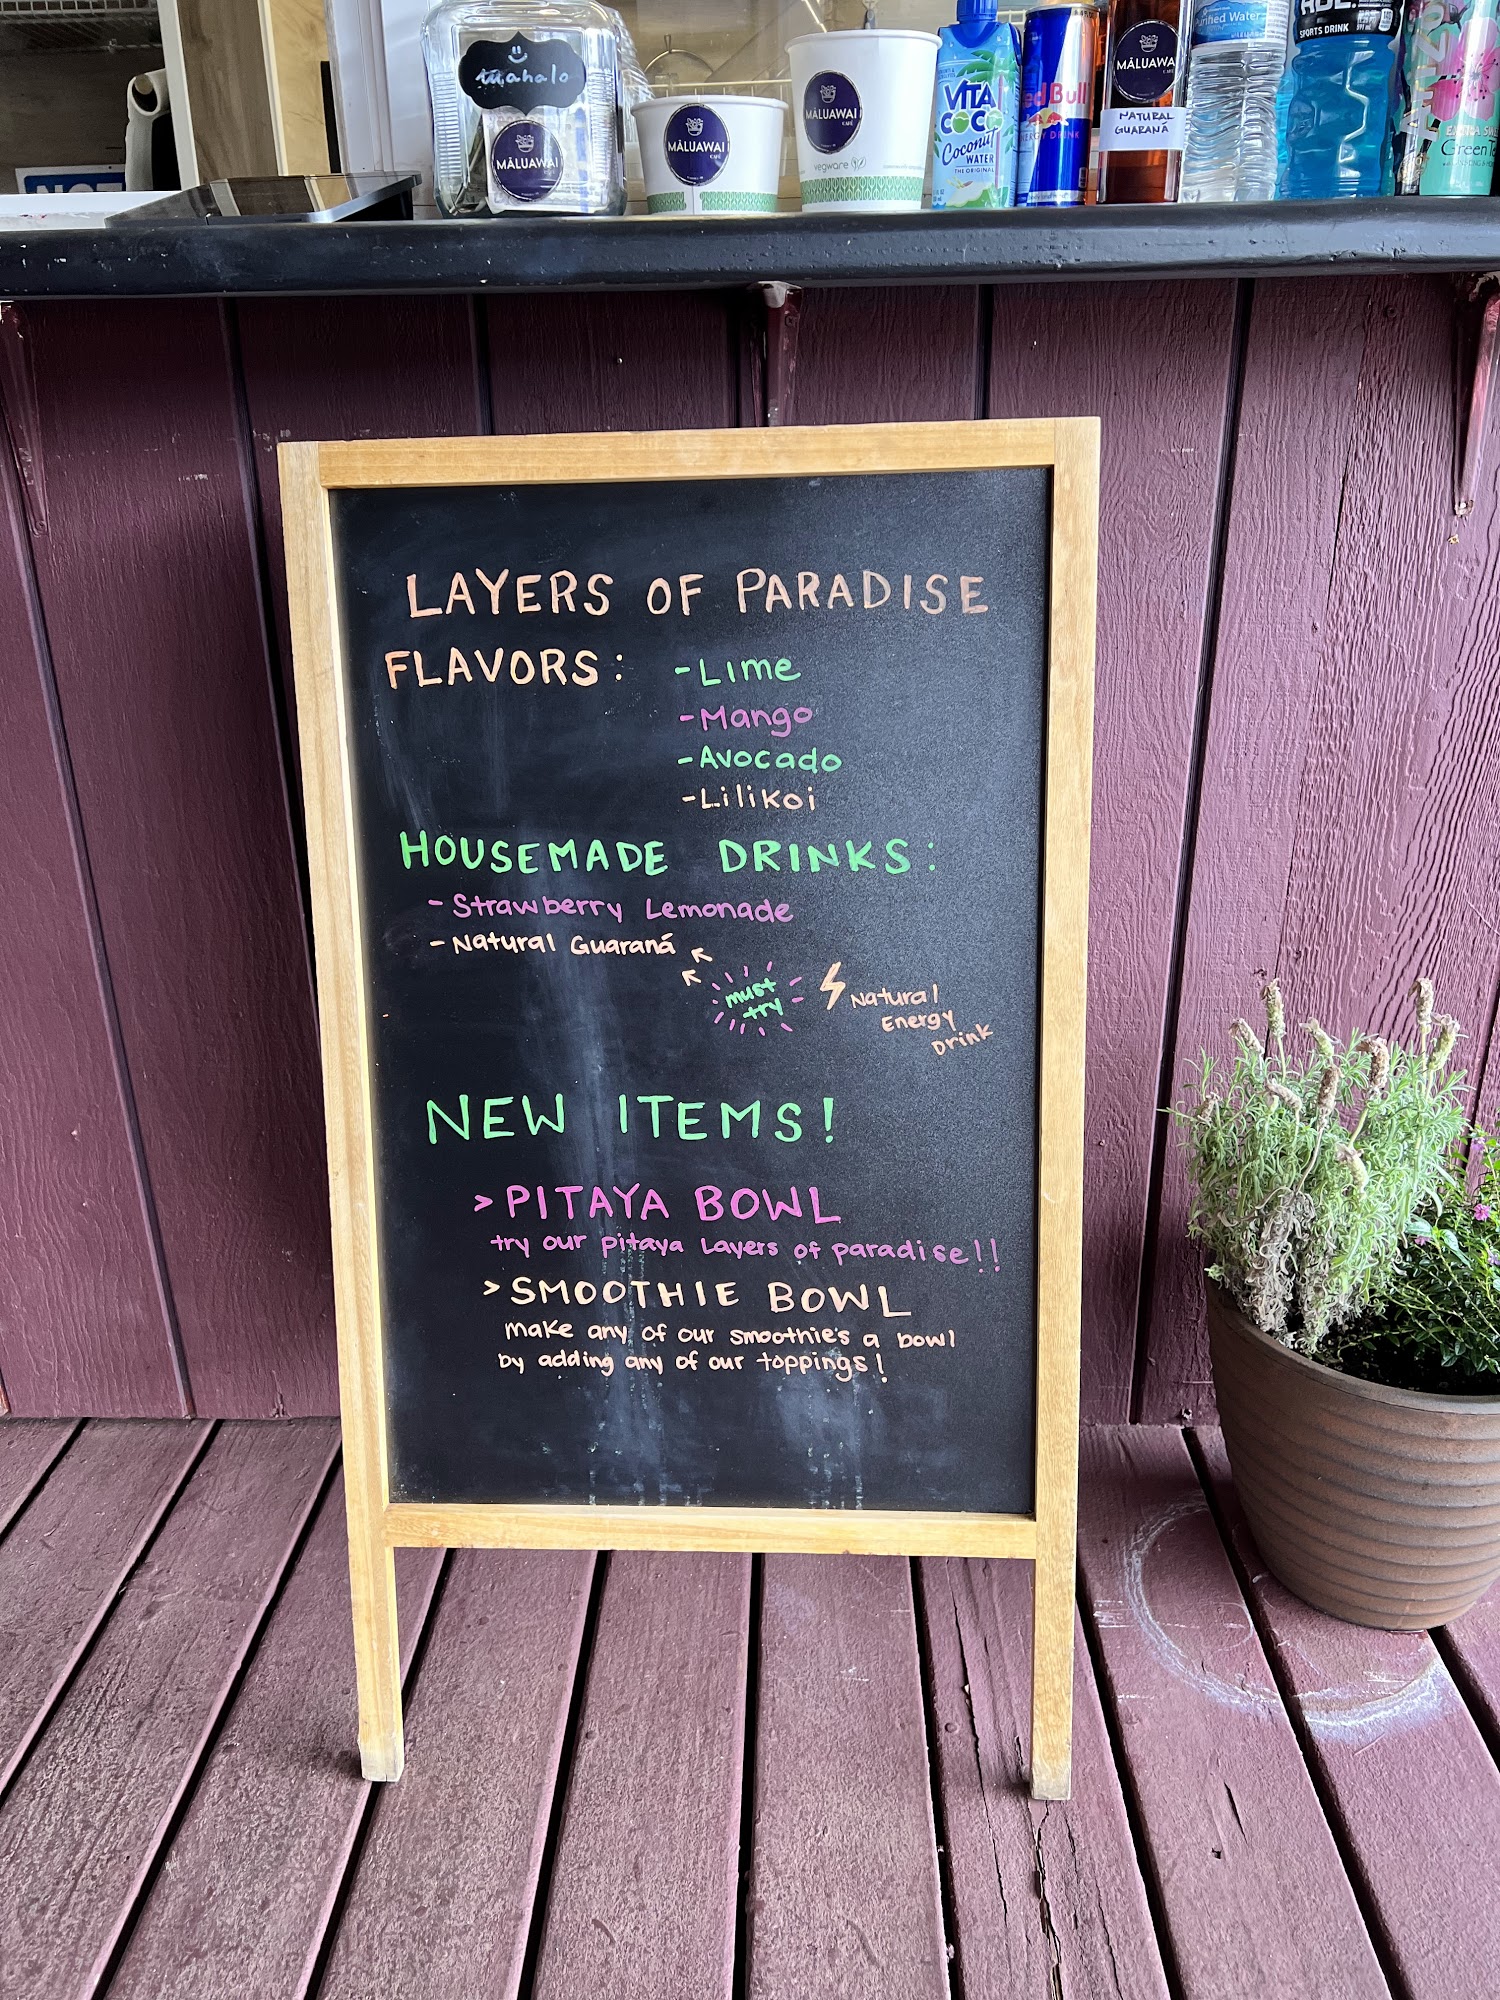 mahalo
MĀLUAWAI
MĀLUAWAI
CAFÉ
MĀLUAWAI
CAFÉ
vegware
VITA
COCO
Coconut
WATER
THE ORIGINAL
Red Bull
ENERGY DRINK
MĀLUAWA
NATURAL
GUARANÁ
Purified Water
SPORTS DRINK
Green Te
LAYERS OF PARADISE
FLAVORS: -Lime
-Mango
-Avocado
-Lilikoi
HOUSEMADE DRINKS:
- Strawberry Lemonade
- Natural Guaraná
must
try
Natural
Energy
Drink
NEW ITEMS!
> PITAYA BOWL
try our pitaya Layers of paradise!!
> SMOOTHIE BOWL
make any of our smoothie's a bowl
by adding any of our toppings!